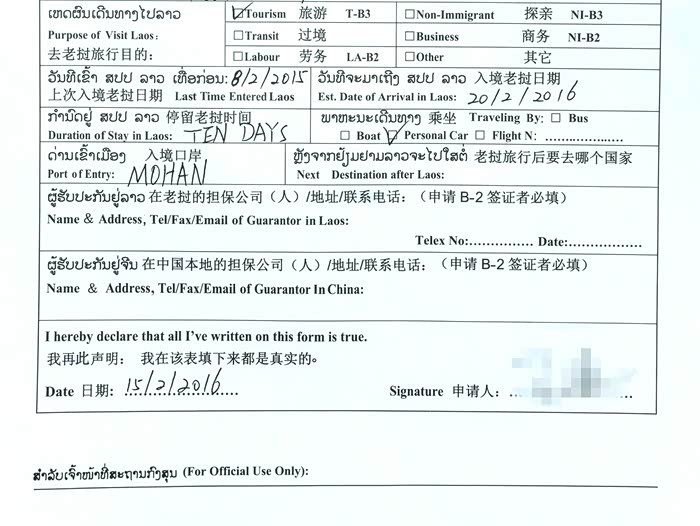 ເຫດຜົນເດີນທາງໄປລາວ
Purpose of Visit Laos:
去老挝旅行目的:
☑Tourism 旅游 T-B3
☐Non-Immigrant 探亲 NI-B3
☐Transit 过境
☐Business 商务 NI-B2
☐Labour 劳务 LA-B2
☐Other 其它
ວັນທີເຂົ້າ ສປປ ລາວ ເທື່ອກ່ອນ: 8/2/2015
上次入境老挝日期 Last Time Entered Laos
ວັນທີຈະມາເຖິງ ສປປ ລາວ 入境老挝日期
Est. Date of Arrival in Laos: 20/2/2016
ກຳນົດຢູ່ ສປປ ລາວ 停留老挝时间
Duration of Stay in Laos: TEN DAYS
ພາຫະນະເດີນທາງ 乘坐 Traveling By: ☐ Bus
☐ Boat ☑ Personal Car ☐ Flight N: ......................
ດ່ານເຂົ້າເມືອງ 入境口岸
Port of Entry: MOHAN
ຫຼັງຈາກຢ້ຽມຢາມລາວຈະໄປໃສຕໍ່ 老挝旅行后要去哪个国家
Next Destination after Laos:
ຜູ້ຮັບປະກັນຢູ່ລາວ 在老挝的担保公司（人）/地址/联系电话:（申请 B-2 签证者必填）
Name & Address, Tel/Fax/Email of Guarantor in Laos:
Telex No:............... Date:.................
ຜູ້ຮັບປະກັນຢູ່ຈີນ 在中国本地的担保公司（人）/地址/联系电话:（申请 B-2 签证者必填）
Name & Address, Tel/Fax/Email of Guarantor In China:
I hereby declare that all I've written on this form is true.
我再此声明: 我在该表填下来都是真实的。
Date 日期: 15/2/2016
Signature 申请人:
ສຳລັບເຈົ້າໜ້າທີ່ສະຖານກົງສຸນ (For Official Use Only):